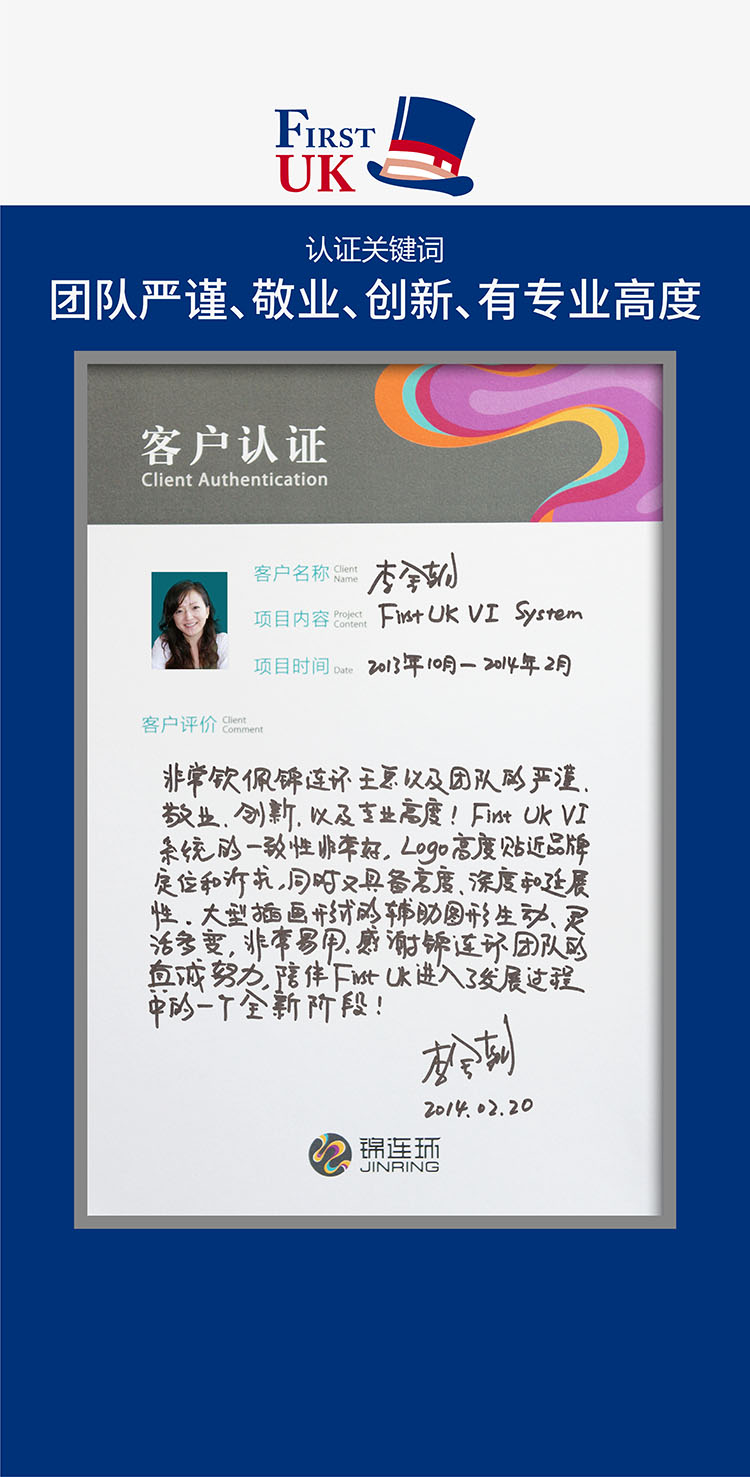 FIRST
UK
认证关键词
团队严谨、敬业、创新、有专业高度
客户认证
Client Authentication
客户名称 Client Name 李金朝
项目内容 Project Content First UK VI System
项目时间 Date 2013年10月—2014年2月
客户评价 Client Comment
非常钦佩锦连环王总以及团队的严谨、
敬业、创新、以及专业高度！First UK VI
系统的一致性非常好，Logo高度贴近品牌
定位和诉求，同时又具备高度、深度和延展
性、大型插画形式的辅助图形生动、灵
活多变，非常易用。感谢锦连环团队的
真诚努力，陪伴First UK进入了发展过程
中的一个全新阶段！
李金朝
2014.02.20
锦连环
JINRING